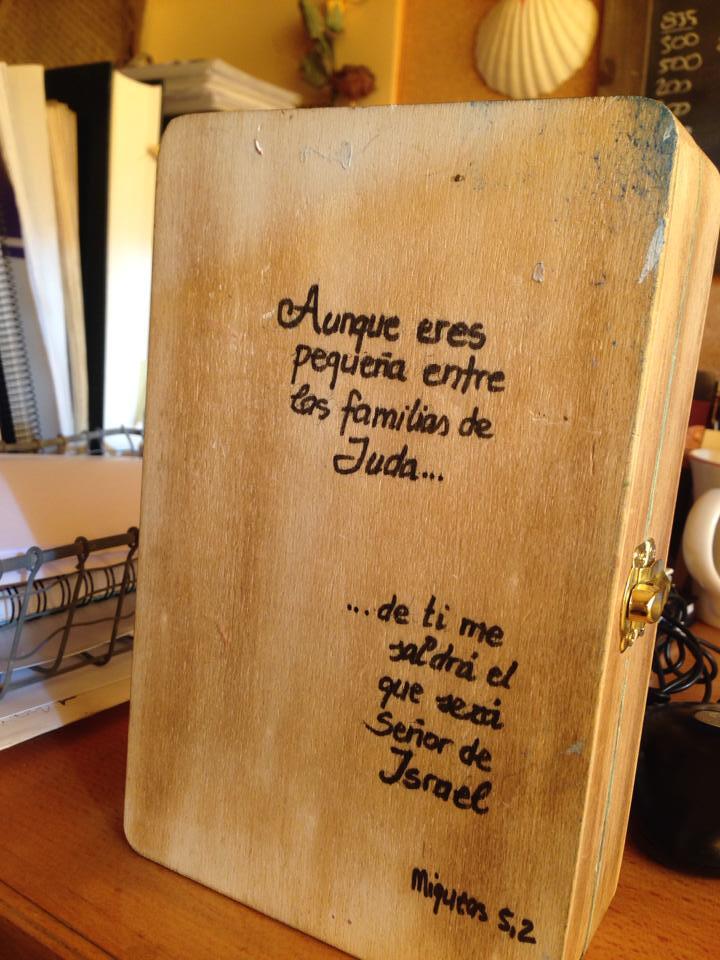 835
500
500
Aunque eres
pequeña entre
las familias de
Juda...
...de ti me
saldrá el
que será
Señor de
Israel
Miqueas 5,2